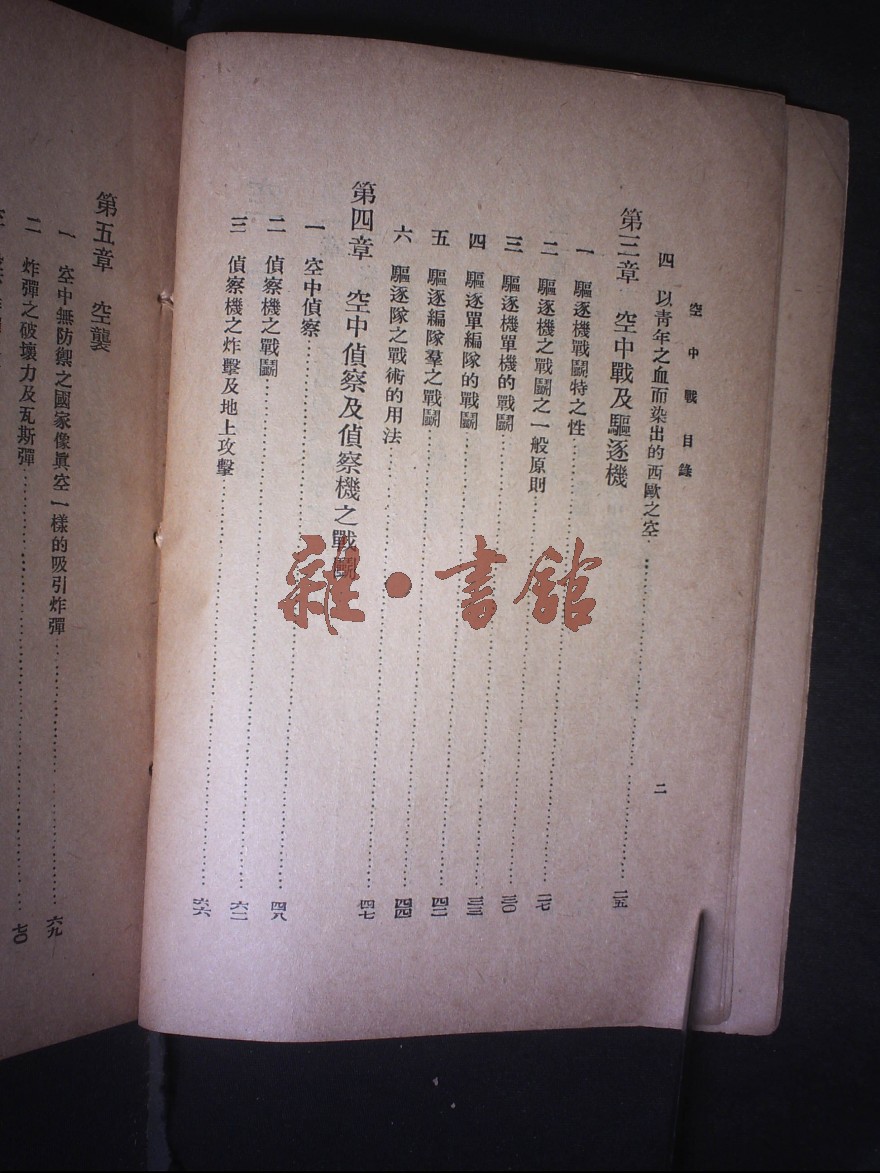 空中戰目錄
二
四 以青年之血而染出的西歐之空……二五
第三章 空中戰及驅逐機
一 驅逐機戰鬪特之性……二七
二 驅逐機之戰鬪之一般原則……三〇
三 驅逐機單機的戰鬪……三三
四 驅逐單編隊的戰鬪……四二
五 驅逐編隊羣之戰鬪……四四
六 驅逐隊之戰術的用法……四七
第四章 空中偵察及偵察機之戰鬪
一 空中偵察……四八
二 偵察機之戰鬪……六二
三 偵察機之炸擊及地上攻擊……六六
第五章 空襲
一 空中無防禦之國家像眞空一樣的吸引炸彈……六九
二 炸彈之破壞力及瓦斯彈……七〇
雜·書館